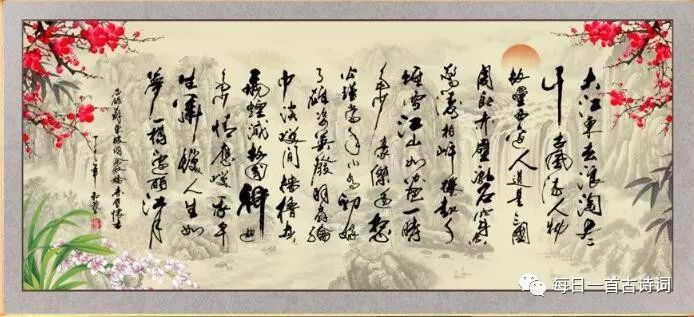 大江東去浪淘尽
千古風流人物
故壘西邊人道是三國
周郎赤壁乱石
驚濤拍岸捲起千
堆雪江山如画一時
多少豪傑遥想
公瑾當年小乔初嫁
了雄姿英發羽扇綸
巾談笑间樯櫓灰
飛煙滅故國神遊
多情應笑我早
生華髮人生如
夢一樽還酹江月
蘇東坡詞念奴嬌赤壁懷古
每日一首古诗词